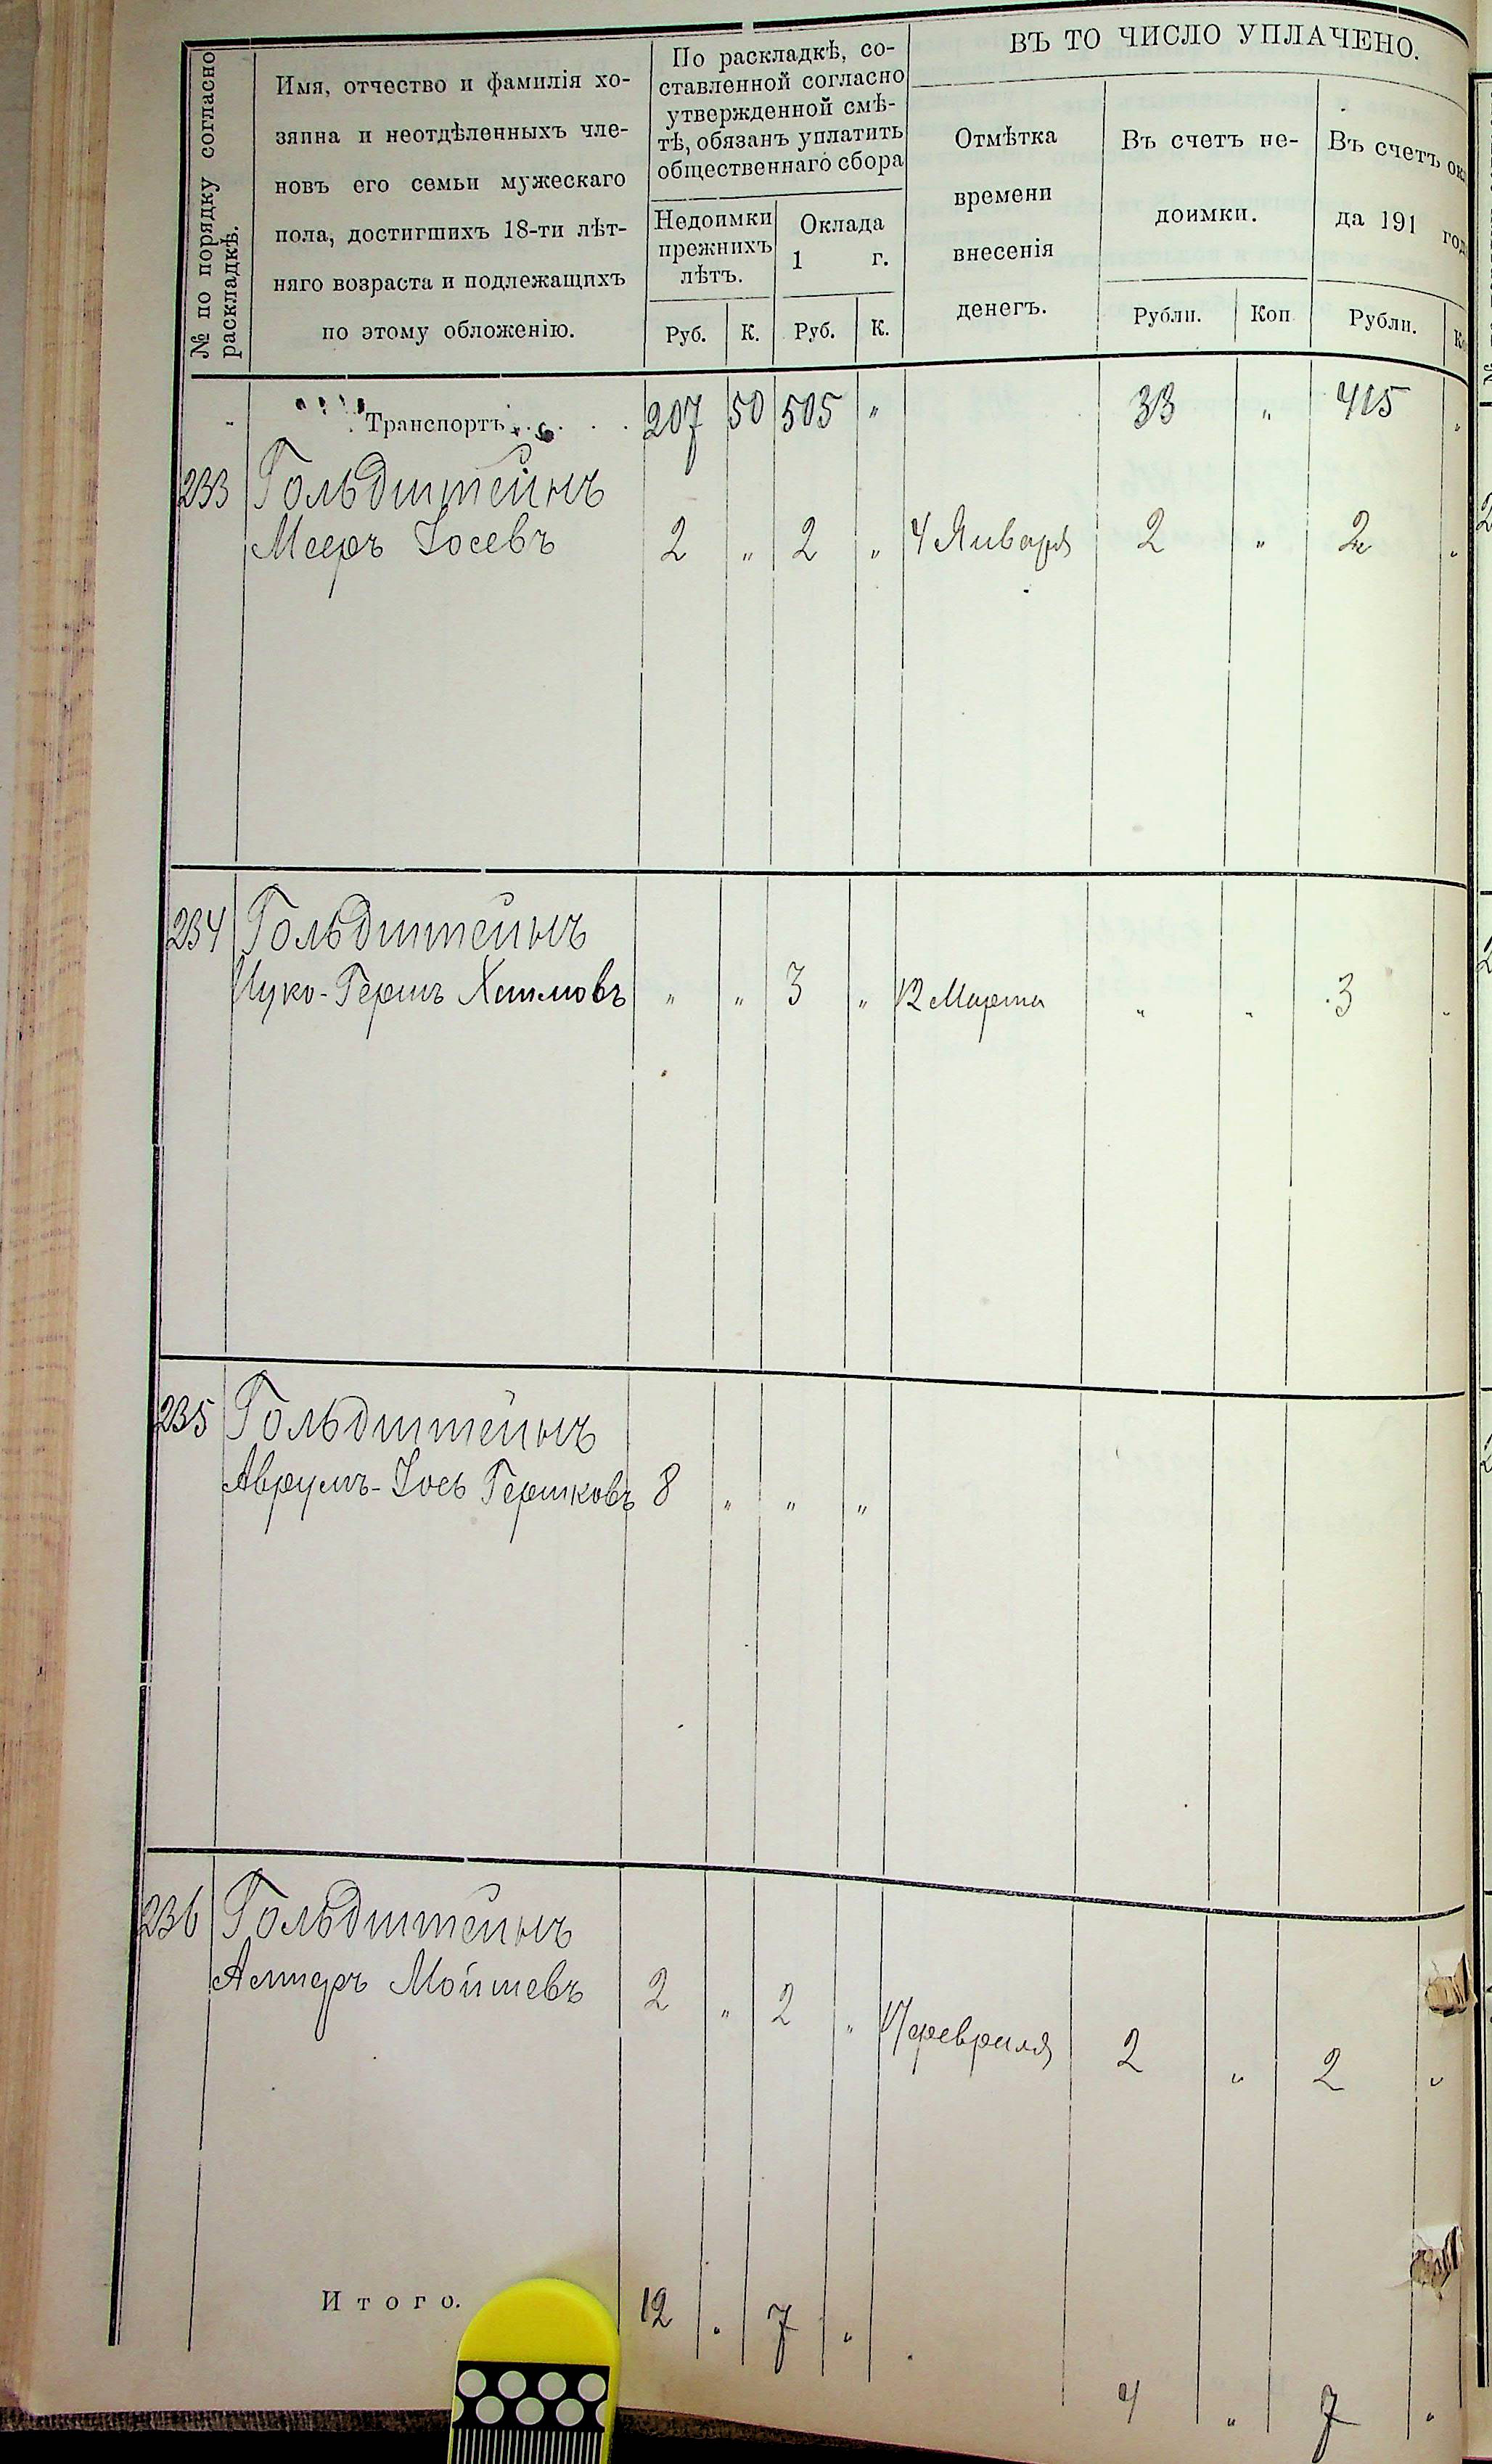 № по порядку согласно
раскладкѣ.
Имя, отчество и фамилія хо-
зяина и неотдѣленныхъ чле-
новъ его семьи мужескаго
пола, достигшихъ 18-ти лѣт-
няго возраста и подлежащихъ
по этому обложенію.
По раскладкѣ, со-
ставленной согласно
утвержденной смѣ-
тѣ, обязанъ уплатить
общественнаго сбора
Недоимки
прежнихъ
лѣтъ.
Оклада
1 г.
Руб. К. Руб. К.
ВЪ ТО ЧИСЛО УПЛАЧЕНО.
Отмѣтка
времени
внесенія
денегъ.
Въ счетъ не-
доимки.
Рубли. Коп
Въ счетъ ок
да 191 год
Рубли. К
Транспортъ . . . . . 207 50 505 " 33 " 415 "
233 Гольдштейнъ
Мееръ Іосевъ 2 " 2 " 4 Января 2 " 2 "
234 Гольдштейнъ
Ицко-Гершъ Хаимовъ " " 3 " 12 Марта " " 3 "
235 Гольдштейнъ
Аврумъ-Іось Гершковъ 8 " " "
236 Гольдштейнъ
Мойшевъ 2 " 2 " 17 февраля 2 " 2 "
Итого. 12 " 7 " 4 " 7 "